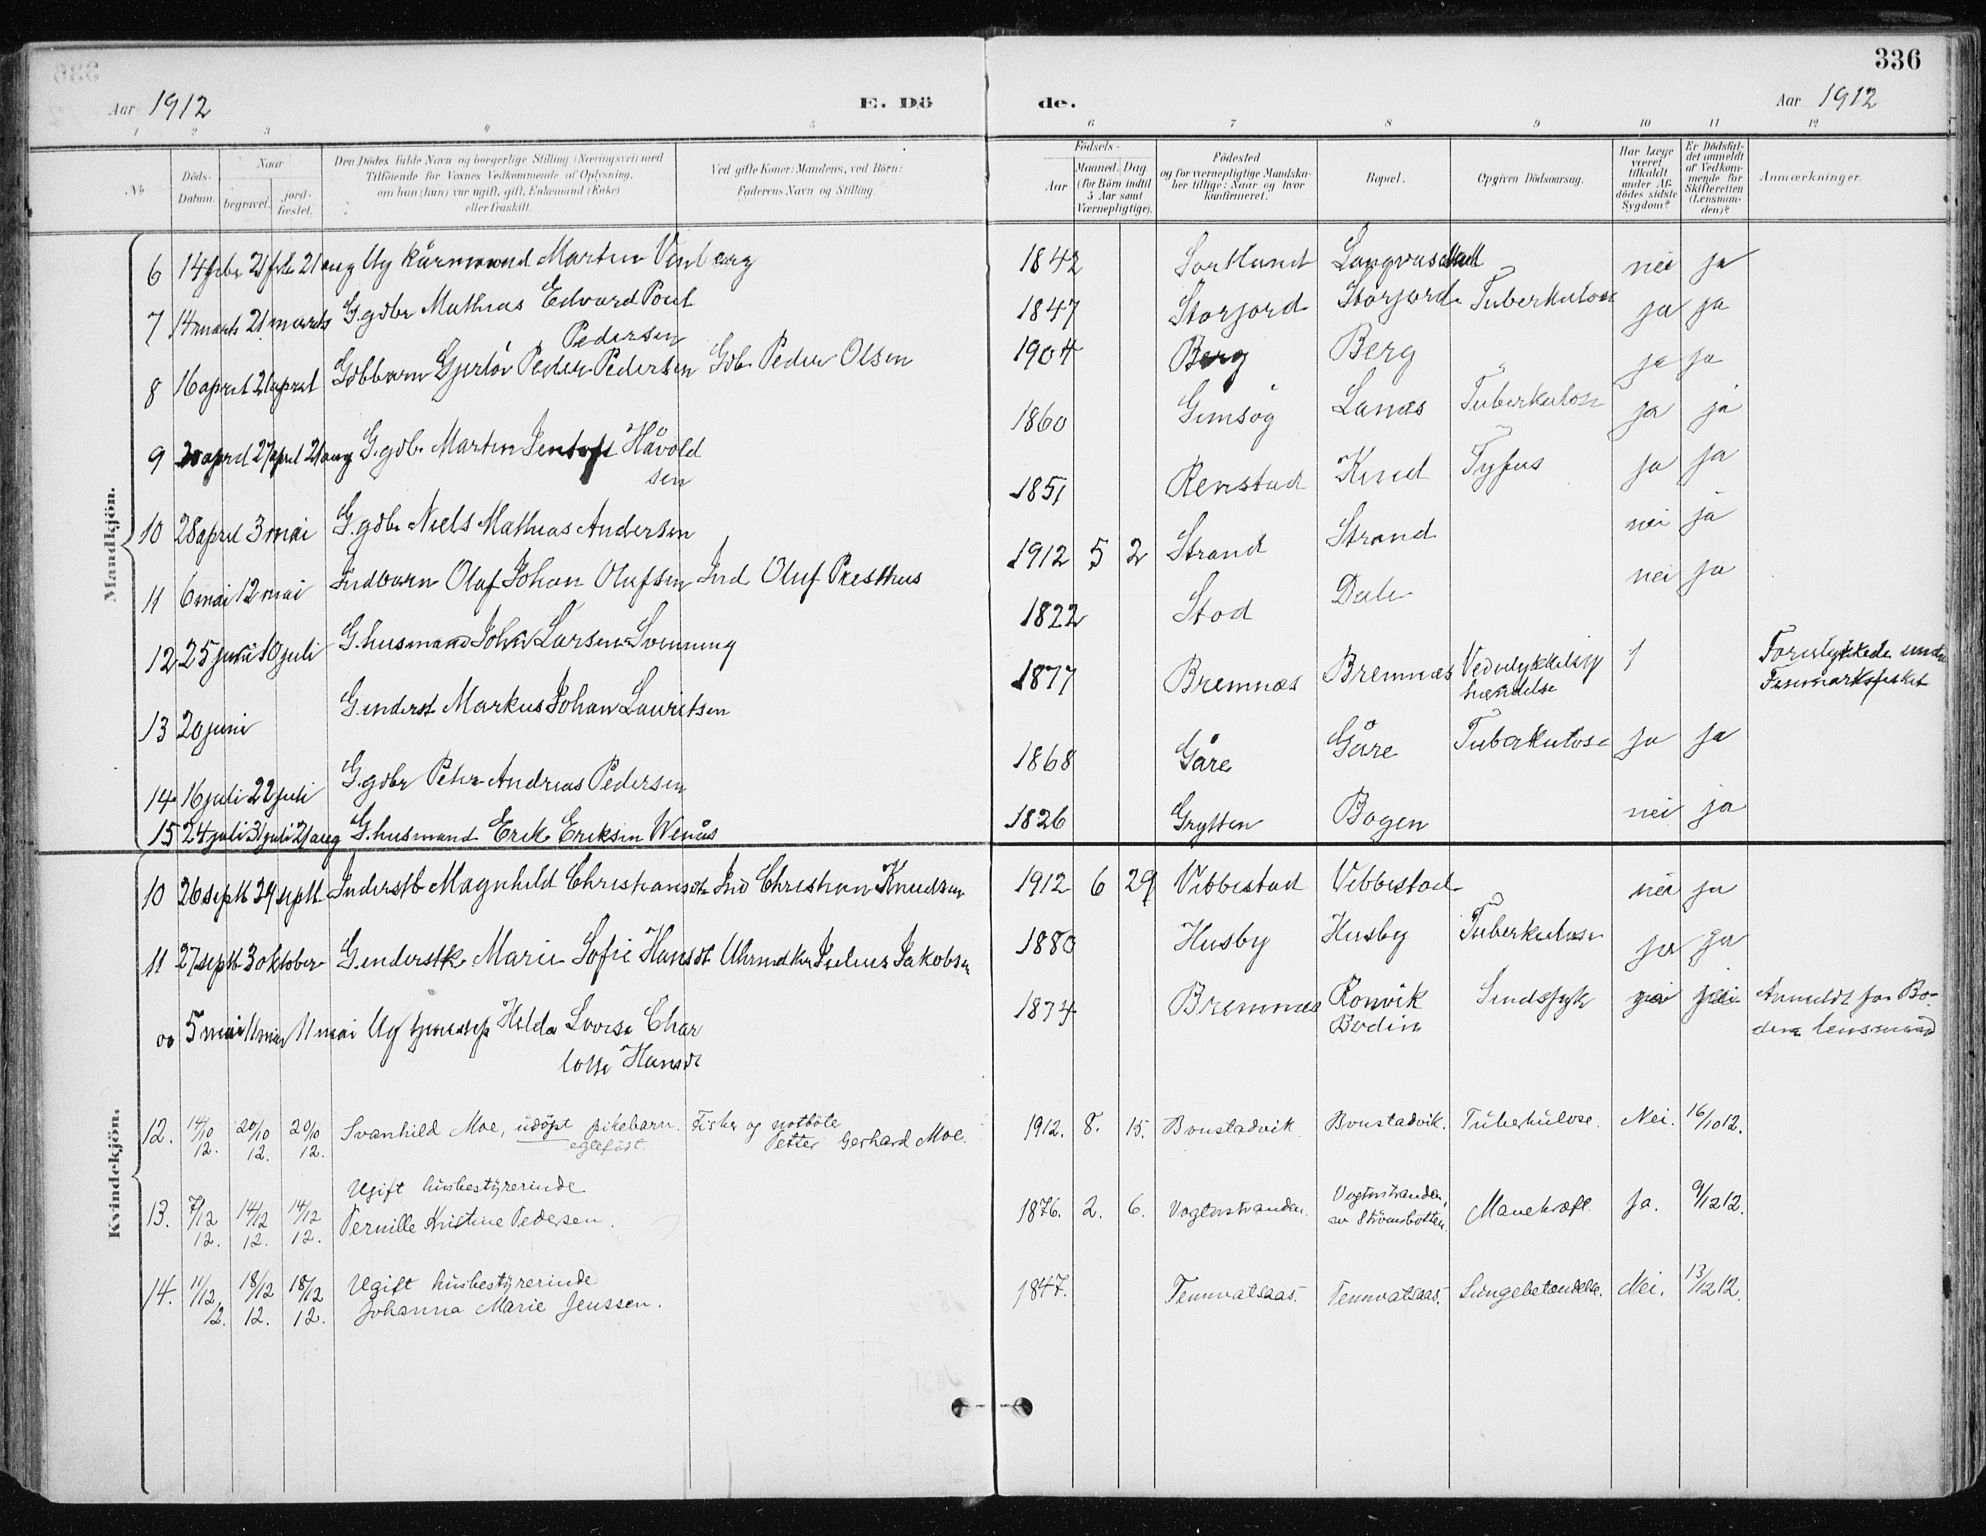 336
Aar 1912 E. Dö de. Aar 1912
1 2 3 4 5 6 7 8 9 10 11 12
No
Döds-Datum.
Naar begravet. jordfæstet.
Den Dödes fulde Navn og borgerlige Stilling (Næringsvei) med
Tilföiende for Voxnes Vedkommende af Oplysning,
om han (hun) var ugift, gift, Enkemand (Enke)
eller fraskilt.
Ved gifte Koner: Mandens, ved Börn:
Faderens Navn og Stilling.
Födsels-
Aar Maaned. Dag.
(for Börn indtil
5 Aar samt
Værnepligtige).
Födested
og for værnepligtige Mandska-
ber tillige: Naar og hvor
konfirmeret.
Bopæl.
Opgiven Dödsaarsag.
Har Læge
været
tilkaldt
under Af-
dödes sidste
Sygdom?
Er Dödsfal-
det anmeldt
af Vedkom-
mende for
Skifteretten
(Lensman-
den)?
Anmærkninger.
Mandkjön.
6 14 febr 21 febr 21 aug Ug kårmand Martin Vinberg 1842 Sortland nei ja
7 14 marts 21 marts G. gdbr Mathias Edvard Poul
Pedersen 1847 Storjord Storjord Tuberkulose ja ja
8 16 april 21 april Gdbbarn Gjerlöv Peder Pedersen Gdb. Peder Olsen 1904 Berg Berg " ja ja
9 20 april 27 april 21 aug G. gdbr Martin Jentoft Håvold
sen 1860 Gimsög Lanæs Tuberkulose ja ja
10 28 april 3 mai G. gdbr Niels Mathias Andersen 1851 Renstad Kvid Tyfus ja ja
11 6 mai 12 mai Indbarn Olaf Johan Olufsen Ind Oluf Presthus 1912 5 2 Strand Strand nei ja
12 25 juni 10 juli G. husmand John Larsen Svinning 1822 Stod Dale nei ja
13 20 juni G. inderst Markus Johan Lauritsen 1877 Bremnæs Bremnæs Vedulykkelig
hændelse 1 Forulykkede under
Finmarksfisket
14 16 juli 22 juli G. gdbr Peter Andreas Pedersen 1868 Gåre Gåre Tuberkulose ja ja
15 24 juli 31 juli 21 aug G. husmand Erik Eriksen Wenås 1826 Grytten Bogen nei ja
Kvindekjön.
10 26 septb 29 septb Inderstb Magnhild Christiansdt Ind Christian Knudsen 1912 6 29 Vibbestad Vibbestad nei ja
11 27 septb 3 oktober G. inderstk Marie Sofie Hansdt Uhrmdker Julius Jakobsen 1880 Husby Husby Tuberkulose ja ja
00 5 mai 11 mai 11 mai Ug Hilda Lovise Char
lotte Hansdt 1874 Bremnæs Ronvik
Bodin Sindssyk nei Anmeldt for Bo-
dins lensmand
12. 14/10 12. 20/10 12. 20/10 12. Svanhild Moe, udöpt pikebarn. Fisker og notböte
egtefödt. Petter Gerhard Moe. 1912. 8. 15. Bonstadvik Bonstadvik. Tuberkulose. Nei. 16/10 12.
13. 7/12 12. 14/12 12. 14/12 12. Ugift husbestyrerinde
Pernille Kristine Pedersen. 1876. 2. 6. Vogtnstranden. Vogtnstranden,
av Strömsbotten. Mavekræft. Ja. 9/12 12.
14. 11/12 12. 18/12 12. 18/12 12. Ugift husbestyrerinde
Johanna Marie Jenssen. 1847. Tennvatsaas. Tennvatsaas. Lungebetændelse. Nei. 13/12 12.